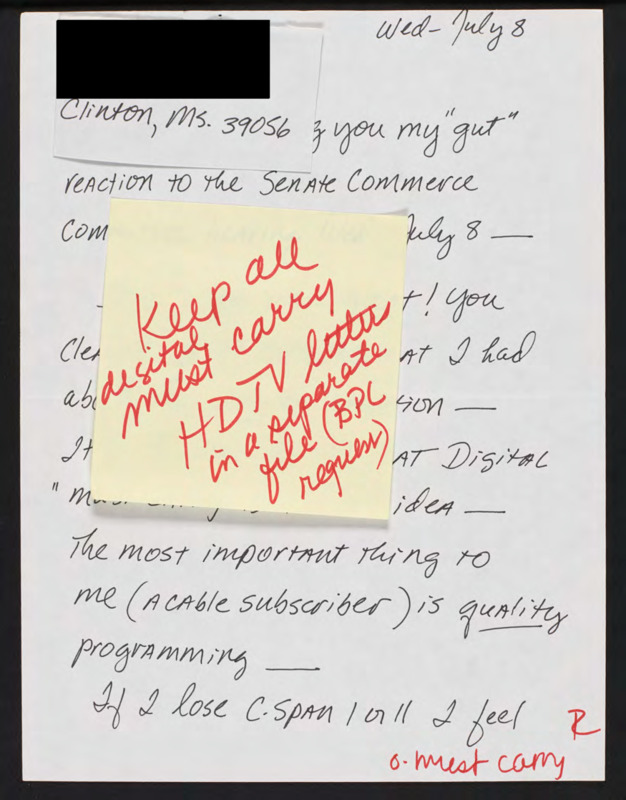 Wed- July 8
Clinton, Ms. 39056
you my "gut"
reaction to the Senate Commerce
Com
July 8 —
! You
Cle
AT I had
ab
ion —
It
AT Digital
"m
idea —
The most important thing to
me (A CAble subscriber) is quality
programming —
If I lose C-SPAN I or II I feel
Keep all
digital
must carry
HDTV letters
in a separate
file (BPL
request)
R
o-must carry